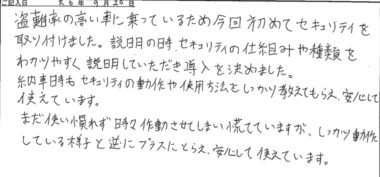 ご記入日 R6年9月20日
盗難率の高い車に乗っているため今回初めてセキュリティを
取り付けました。説明の時、セキュリティの仕組みや種類を
わかりやすく説明していただき導入を決めました。
納車時もセキュリティの動作や使用方法をしっかり教えてもらえ、安心して
使えています。
まだ使い慣れず時々作動させてしまい慌てていますが、しっかり動作
している様子と逆にプラスにとらえ、安心して使えています。